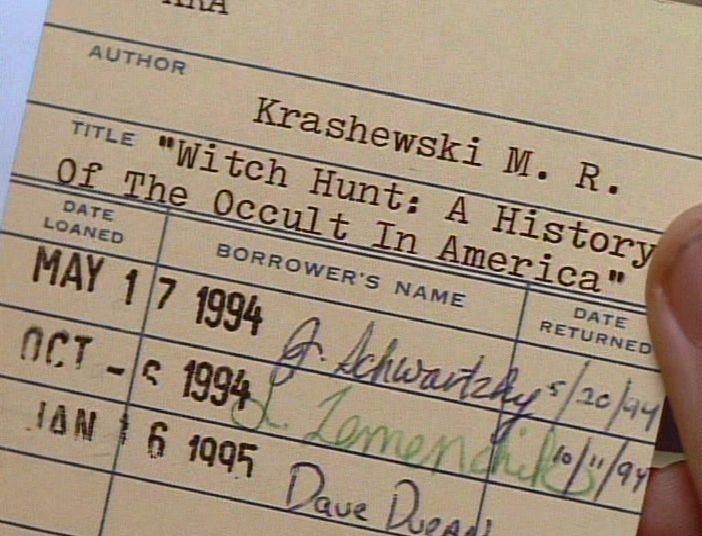 KRA
AUTHOR
Krashewski M. R.
TITLE "Witch Hunt: A History
Of The Occult In America"
DATE LOANED
BORROWER'S NAME
DATE RETURNED
MAY 17 1994 J. Schwartzky 5/20/94
OCT - 1994 L. 10/11/94
JAN 16 1995 Dave Duran